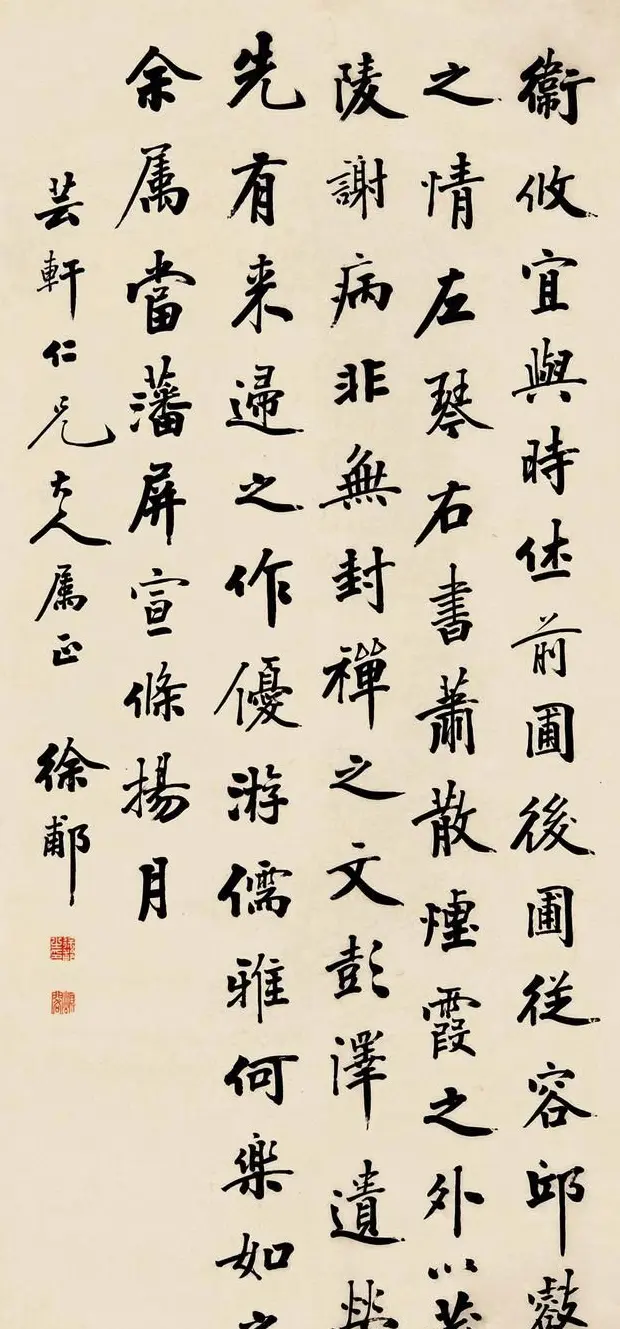 衞攸宜與時休前圃後圃従容邱壑
之情左琴右書蕭散煙霞之外以茂
陵謝病非無封禪之文彭澤遺榮
先有来歸之作優游儒雅何樂如之
余属當藩屏宣條揚月
芸軒仁兄大人属正 徐郙